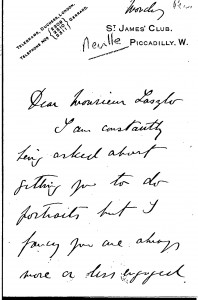 Monday
TELEGRAMS, DUCHMAN, LONDON.
TELEPHONE NOS
GERRARD.
ST JAMES' CLUB,
Neville
PICCADILLY, W.
Dear Monsieur Laszlo
I am constantly
being asked about
getting you to do
portraits but I
fancy you are always
more or less engaged.